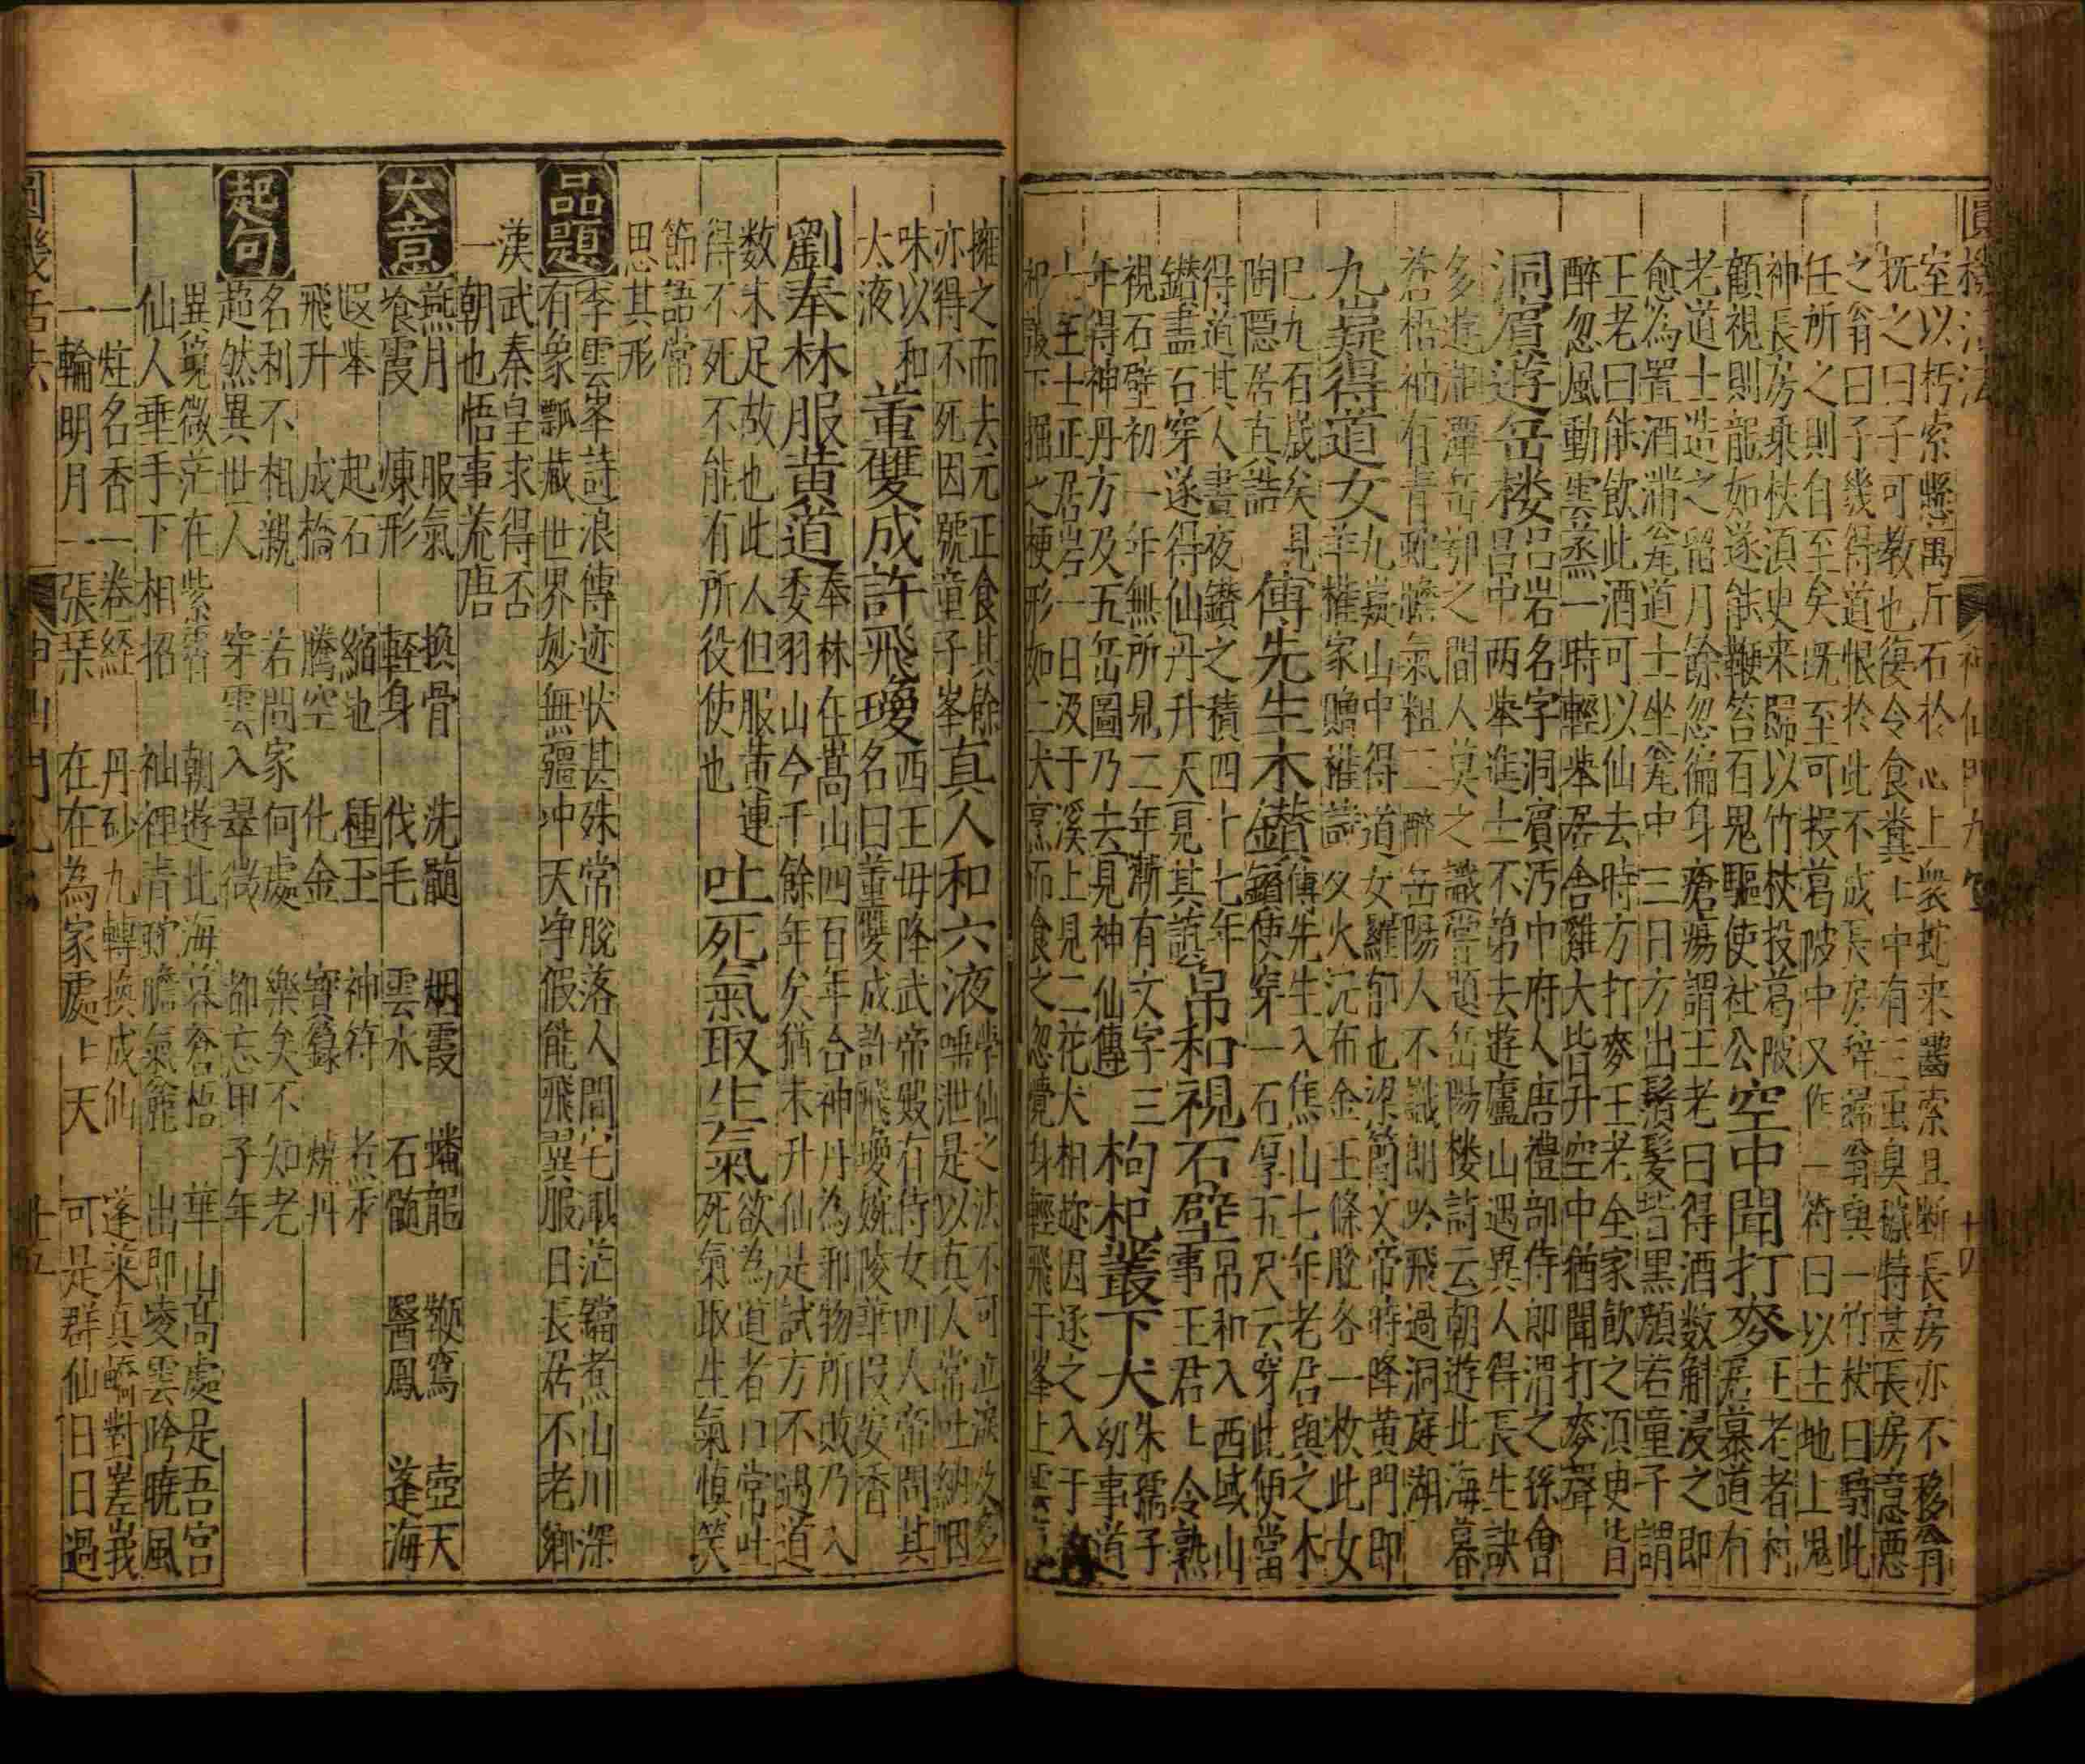 圓機活法
神仙門九卷
十四
室以朽索懸萬斤石於心上衆蛇来齧索且斷長房亦不移翁
抚之曰子可教也復令食糞上中有三虫臭穢特甚長房意惡
之翁曰子幾得道恨於此不成長房辞歸翁與一竹杖曰騎此
任所之則自至矣既至可投葛陂中又作一符曰以主地上鬼
神長房乗杖須史来歸以竹杖投葛陂
顧視則龍如遂能鞭笞石鬼驅使社公
空中聞打麥
王老者村
居慕道有
老道士造之留月餘忽徧身瘡瘍謂王老曰得酒数斛浸之即
愈為置酒滿瓮道士坐瓮中三日方出鬚髮皆黑顔若童子謂
王老曰能飲此酒可以仙去時方打麥王老全家飲之須臾皆
醉忽風動雲蒸一時輕舉居舍雞犬皆升空中猶聞打麥聲
洞賔遊岳楼
吕岩名字洞賔沔中府人唐禮部侍郎渭之孫會
昌中两舉進士不第去遊廬山遇異人得長生訣
多遊湘潭岳鄂之間人莫之識甞題岳陽楼詩云朝遊北海暮
蒼梧袖有青蛇膽氣粗三醉岳陽人不識朗吟飛過洞庭湖
九嶷得道女
九嶷山中得道女羅郁也梁簡文帝時降黄門即
羊權家贈權詩
火沉布金玉條脫各一枚此女
巳九百歳矣見
陶隠居真誥
傅先生木鑚
傅先生入焦山七年老君與之木
鑚使穿一石厚五尺云穿此便當
得道其人晝夜鑚之積四十七年
鑚盡石穿遂得仙丹升天見其誥
帛和視石壁
帛和入西域山
事王君上令熟
視石壁初一年無所見二年漸有文字三
年得神丹方及五岳圖乃去見神仙傳
枸杞叢下犬
朱孺子
幼事道
士王正君岩一日汲于溪上見二花犬相趂因逐之入于
杞叢下掘之梗形如二犬烹而食之忽覺身輕飛于峯上
擁之而去元正食其餘
亦得不死因號童子峯
真人和六液
學仙之法不可泣涙及多
唾泄是以真人常吐納咽
味以和
太液
董雙成許飛瓊
西王母降武帝殿有侍女四人帝問其
名曰董雙成許飛瓊婉陵華段安香
劉奉林服黄道
奉林在嵩山四百年合神丹為邪物所敗乃入
委羽山今千餘年矣猶未升仙是試方不過道
数未足故也此人但服黄連
得不死不能有所役使也
吐死氣取生氣
欲為道者口常吐
死氣取生氣慎笑
節語常
思其形
品題
李雲峯詩浪傳迹状甚殊常脫落人間宅渺茫鐺煮山川深
有象瓢藏世界妙無疆冲天净假能飛翼服日長居不老鄉
漢武秦皇求得否
一朝也悟事荒唐
大意
燕月 服氣 換骨 洗髓 烟霞 蟠龍 鞭鸞 壺天
飡霞 煉形 輕身 伐毛 雲水 石髓 醫鳳 蓬海
遐舉 起石 縮地 種玉 神符 煮汞
飛升 成橋 騰空 化金 寳籙 燒丹
名利不相親 若問家何處 樂矣不知老
超然異世人 穿雲入翠微 都忘甲子年
起句
異㝷微茫在紫霄 朝遊北海暮蒼梧 華山高處是吾宫
仙人垂手下相招 袖裡青蛇膽氣麄 出即凌雲吟曉風
一炷名香一卷経 丹砂九轉換成仙 蓬萊真嶠對嵳峩
一輪明月一張琹 在在為家處上天 可是群仙日日過
圓機活法
神仙門九卷
十五